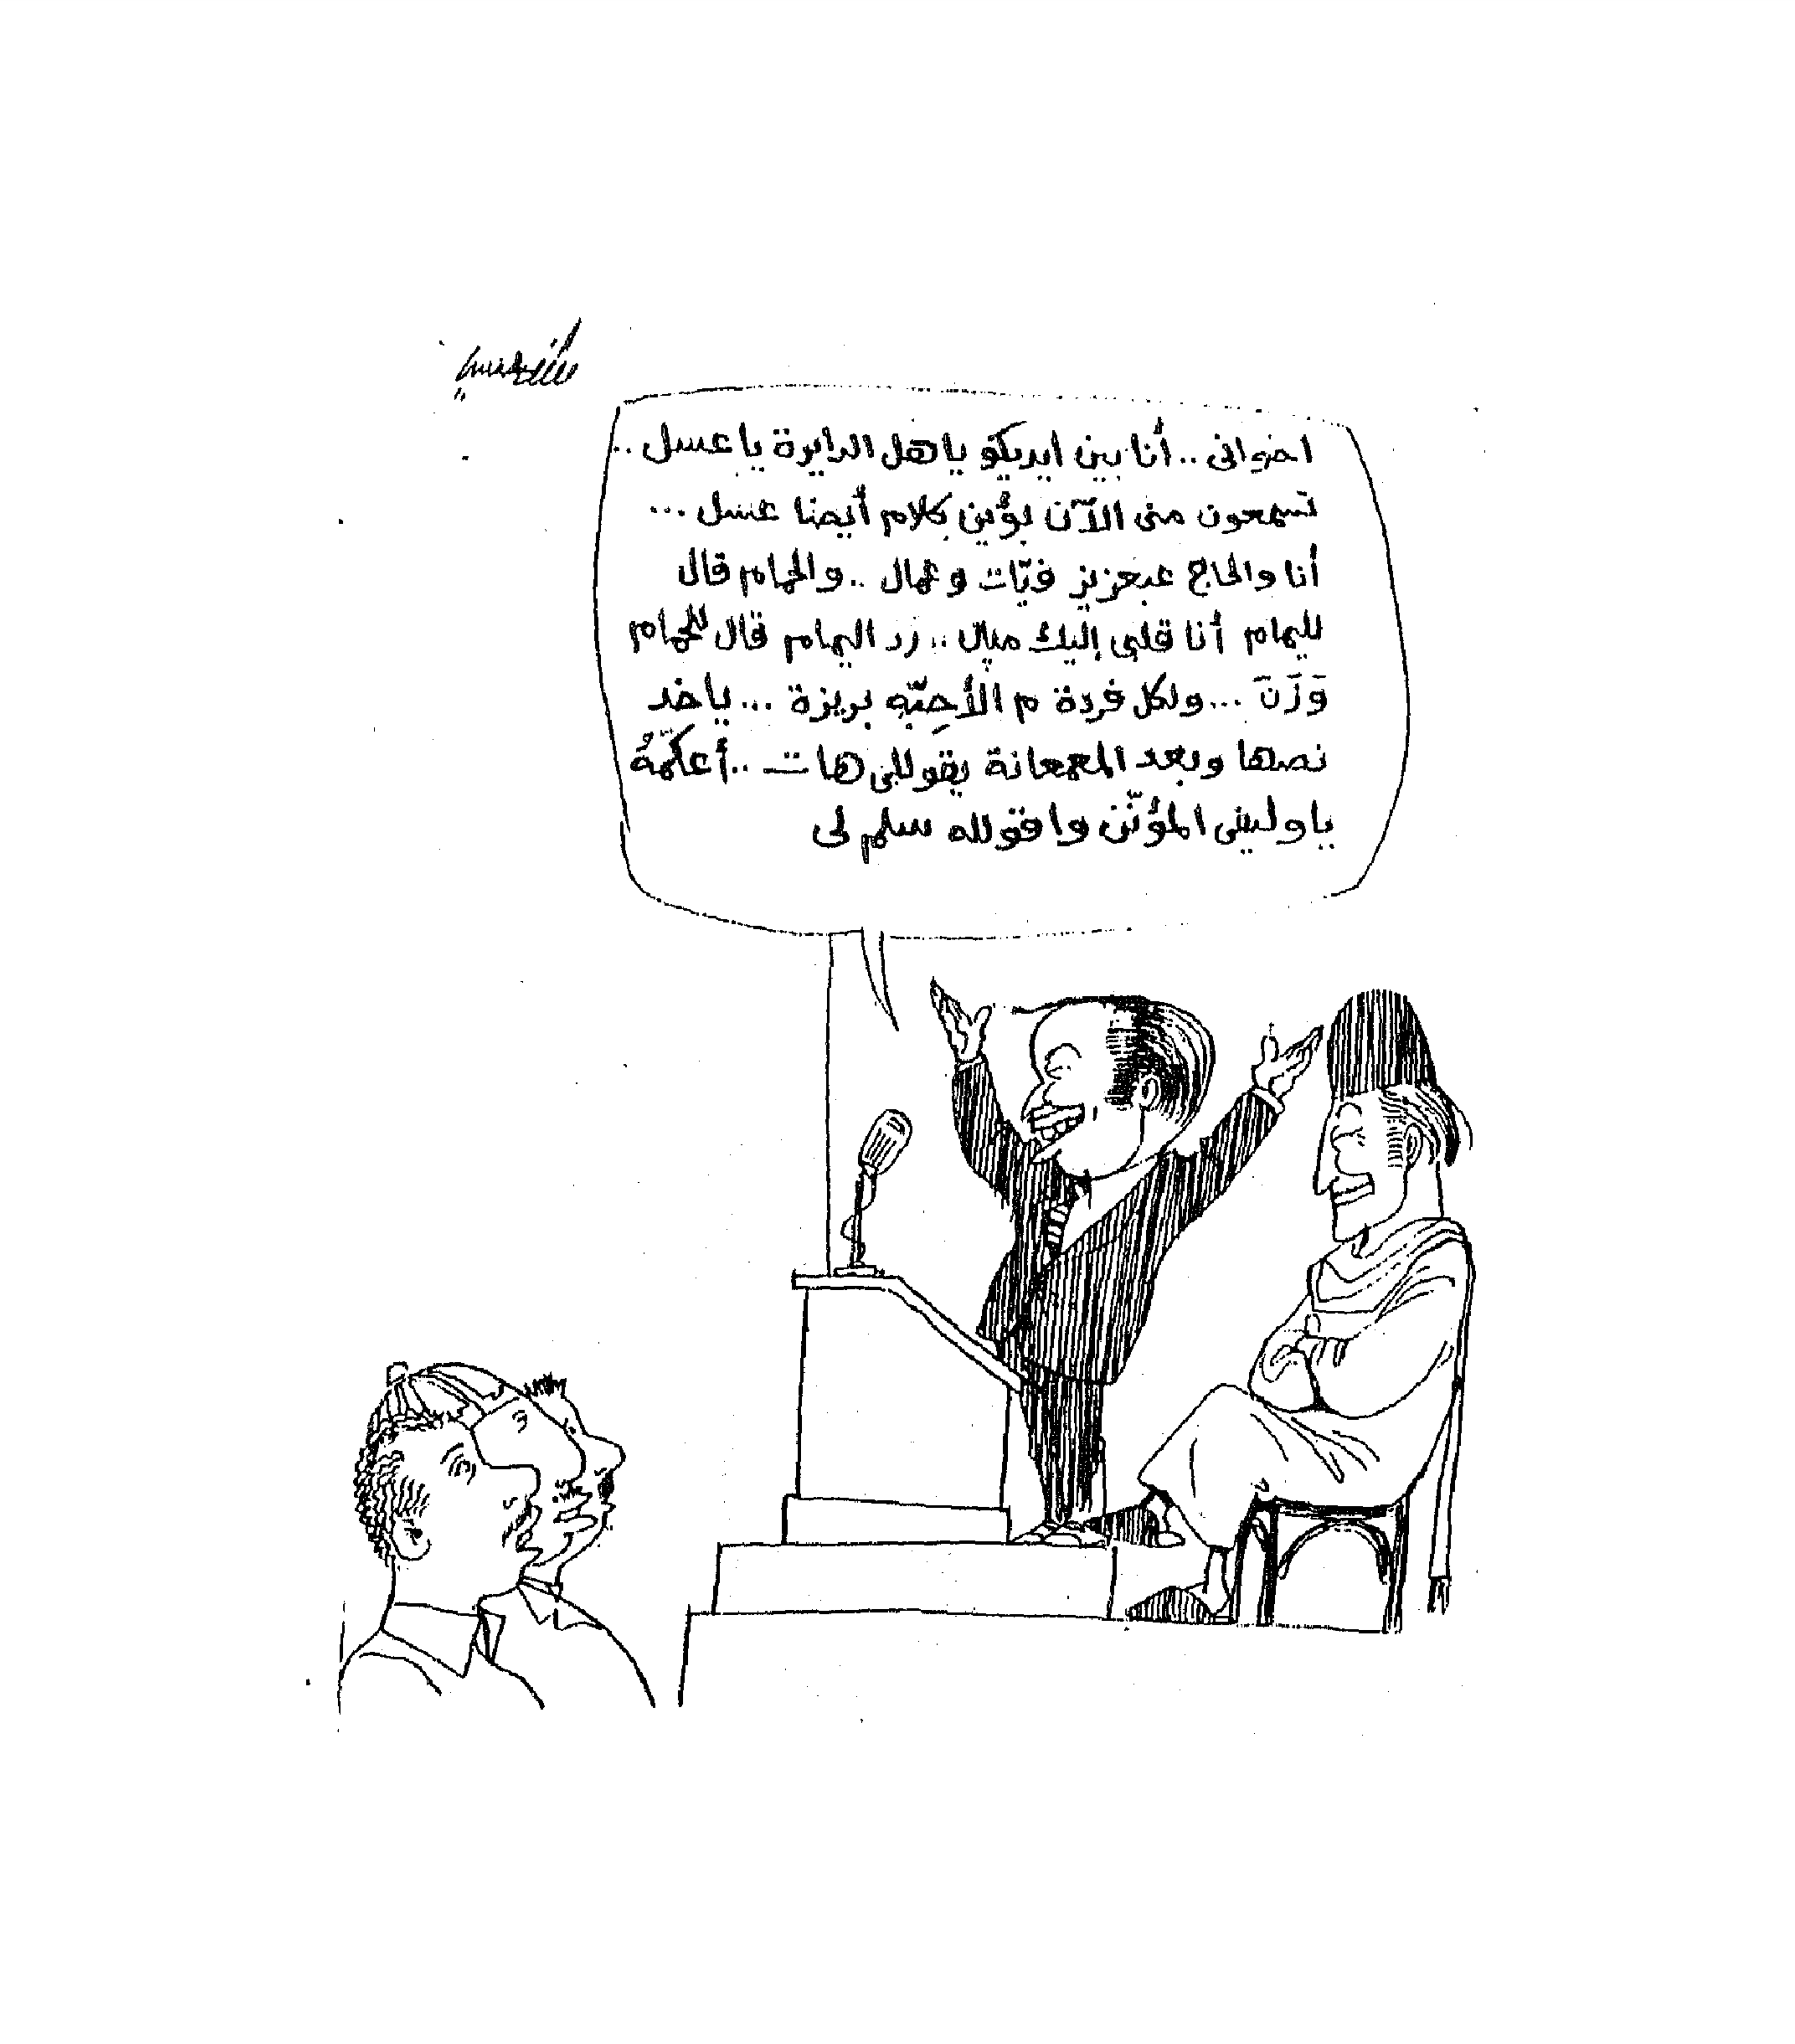 اخوانى .. أنا بين ايديكو ياهل الدايرة يا عسل ..
تسمعون منى الآن بؤين كلام أيضا عسل ...
أنا والحاج عبعزيز فئات وعمال .. والحمام قال
لليمام أنا قلبى إليك ميال .. رد اليمام قال للحمام
وَزَنَ ... ولكل فردة م الأحِبّهِ بريزة ... ياخد
نصها وبعد المعمعانة يقوللى هات .. أعكّمهُ
ياوليفى المؤنّن واقولله سلم لى